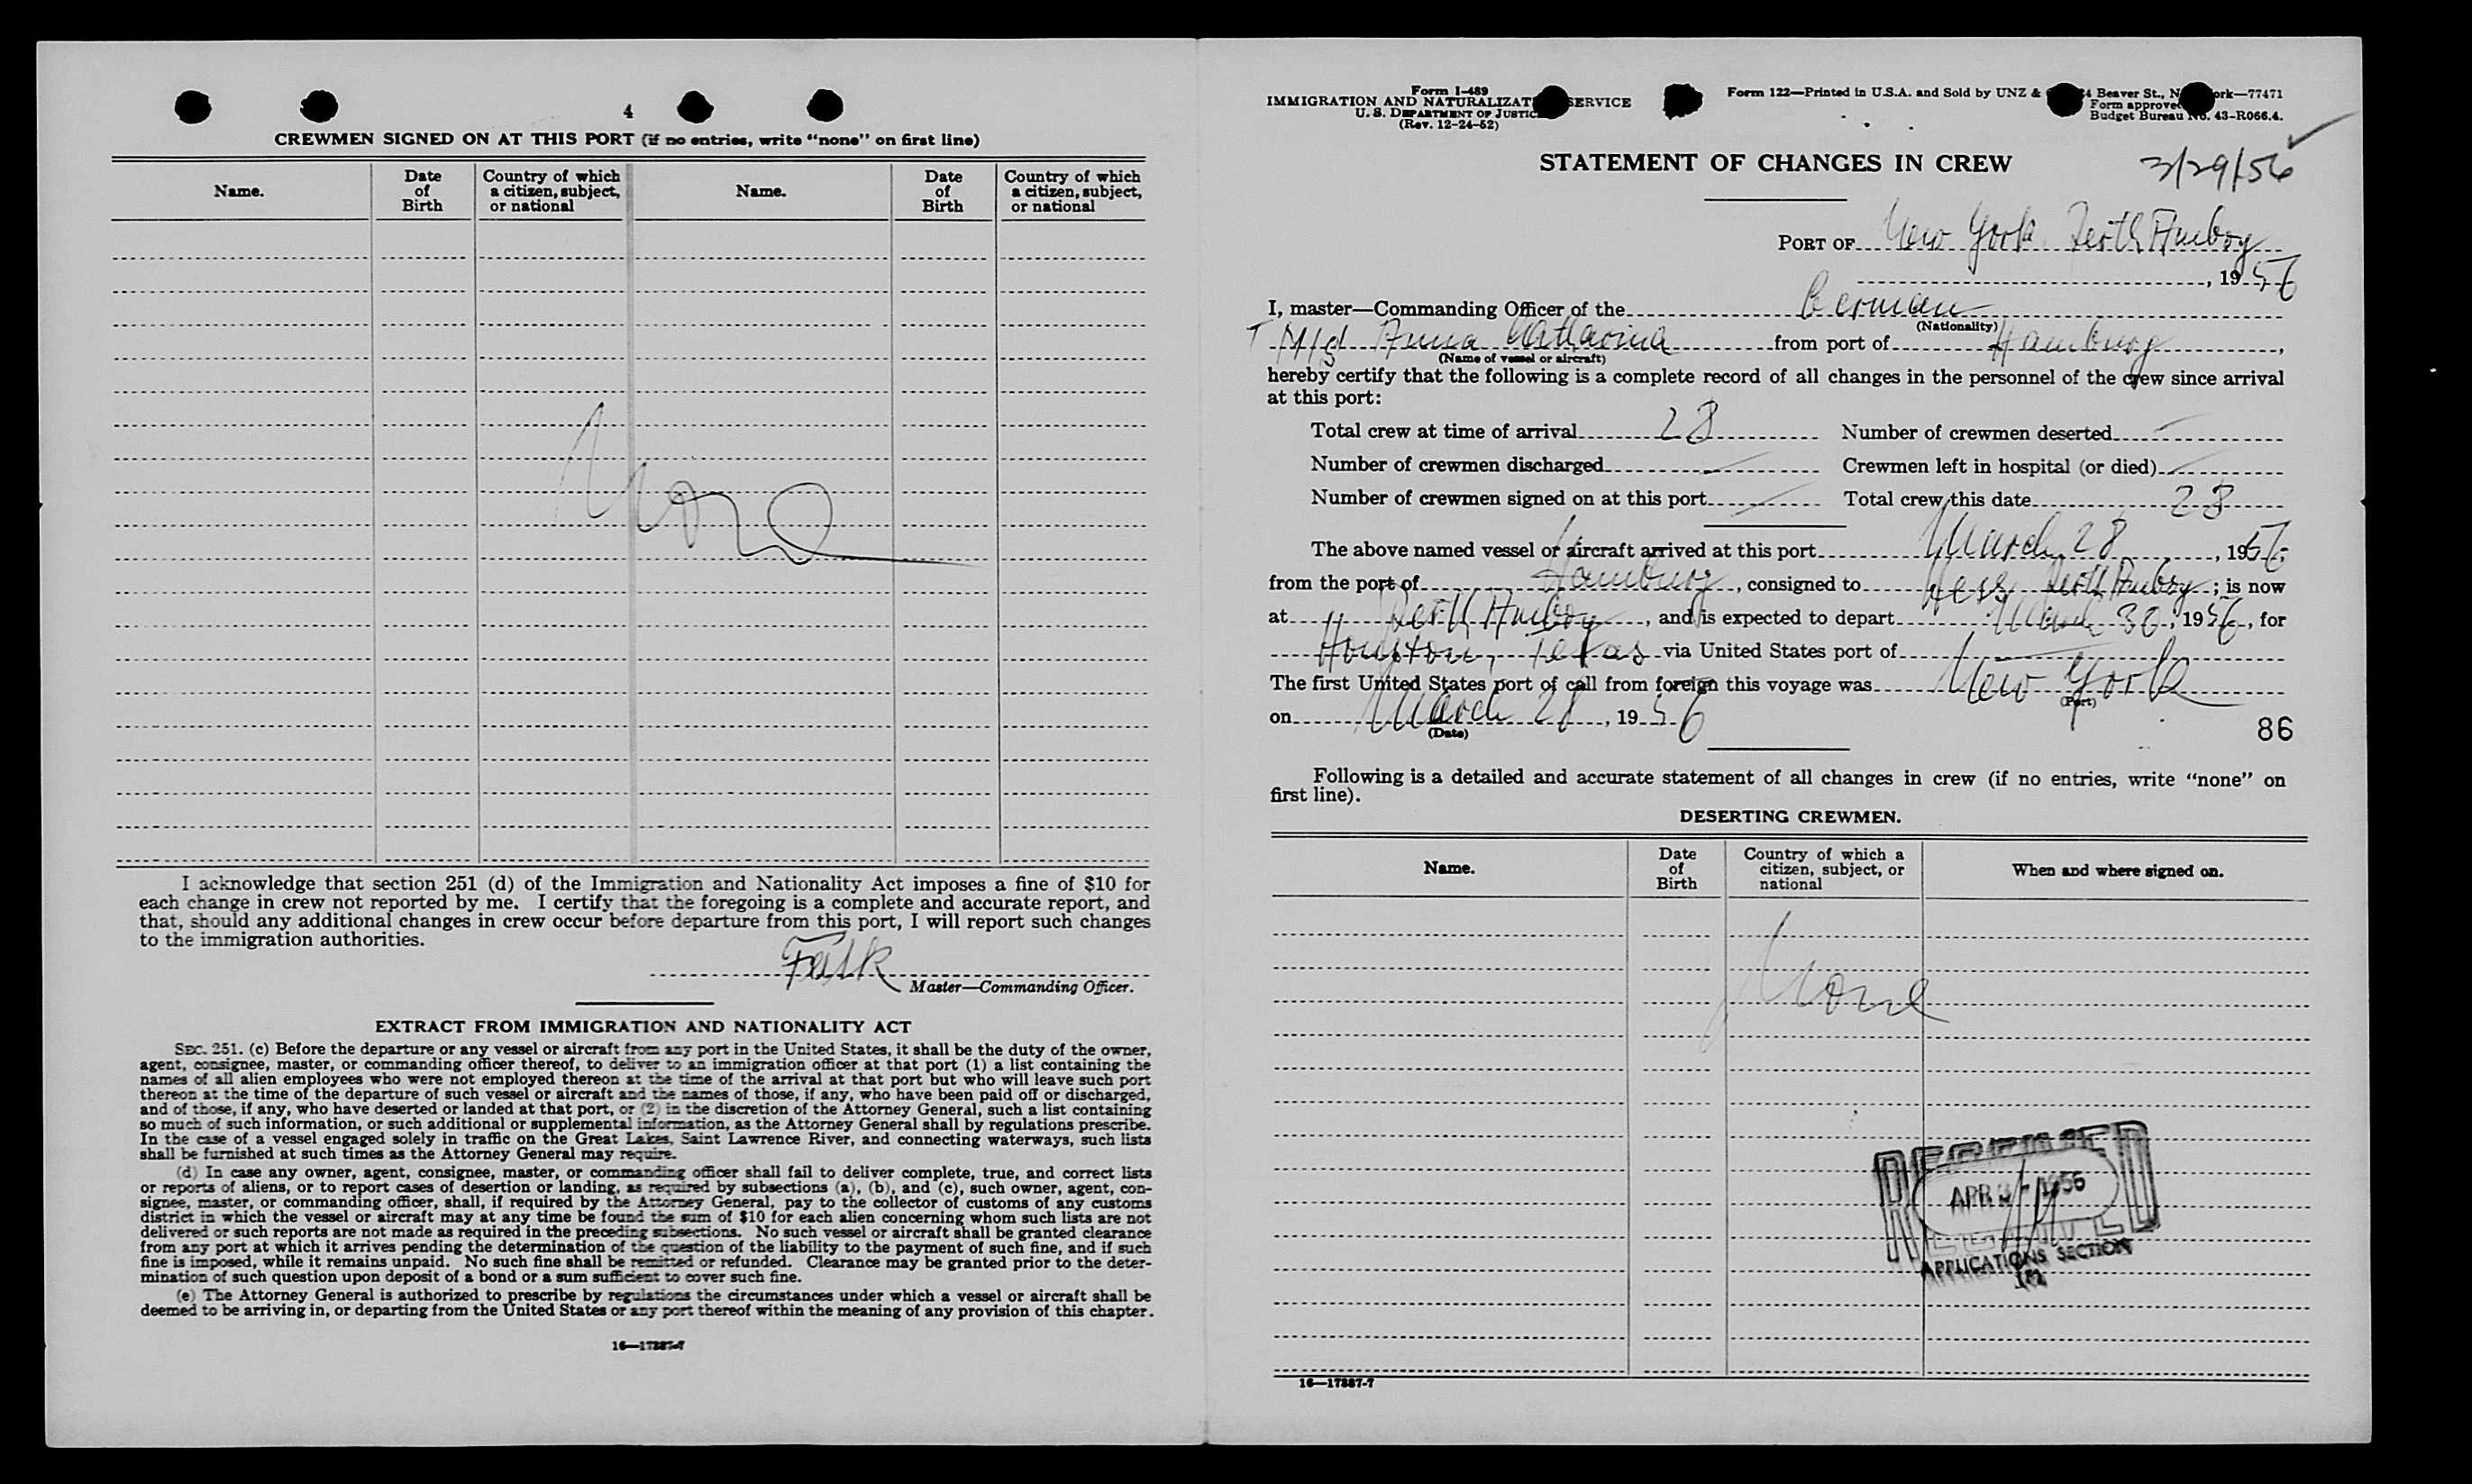 4
CREWMEN SIGNED ON AT THIS PORT (if no entries, write “none” on first line)
Name. Date of Birth Country of which a citizen, subject, or national Name. Date of Birth Country of which a citizen, subject, or national
None
I acknowledge that section 251 (d) of the Immigration and Nationality Act imposes a fine of $10 for
each change in crew not reported by me. I certify that the foregoing is a complete and accurate report, and
that, should any additional changes in crew occur before departure from this port, I will report such changes
to the immigration authorities.
Falk
Master—Commanding Officer.
EXTRACT FROM IMMIGRATION AND NATIONALITY ACT
SEC. 251. (c) Before the departure or any vessel or aircraft from any port in the United States, it shall be the duty of the owner,
agent, consignee, master, or commanding officer thereof, to deliver to an immigration officer at that port (1) a list containing the
names of all alien employees who were not employed thereon at the time of the arrival at that port but who will leave such port
thereon at the time of the departure of such vessel or aircraft and the names of those, if any, who have been paid off or discharged,
and of those, if any, who have deserted or landed at that port, or (2) in the discretion of the Attorney General, such a list containing
so much of such information, or such additional or supplemental information, as the Attorney General shall by regulations prescribe.
In the case of a vessel engaged solely in traffic on the Great Lakes, Saint Lawrence River, and connecting waterways, such lists
shall be furnished at such times as the Attorney General may require.
(d) In case any owner, agent, consignee, master, or commanding officer shall fail to deliver complete, true, and correct lists
or reports of aliens, or to report cases of desertion or landing, as required by subsections (a), (b), and (c), such owner, agent, con-
signee, master, or commanding officer, shall, if required by the Attorney General, pay to the collector of customs of any customs
district in which the vessel or aircraft may at any time be found the sum of $10 for each alien concerning whom such lists are not
delivered or such reports are not made as required in the preceding subsections. No such vessel or aircraft shall be granted clearance
from any port at which it arrives pending the determination of the question of the liability to the payment of such fine, and if such
fine is imposed, while it remains unpaid. No such fine shall be remitted or refunded. Clearance may be granted prior to the deter-
mination of such question upon deposit of a bond or a sum sufficient to cover such fine.
(e) The Attorney General is authorized to prescribe by regulations the circumstances under which a vessel or aircraft shall be
deemed to be arriving in, or departing from the United States or any port thereof within the meaning of any provision of this chapter.
16—17887-7
Form I-489
IMMIGRATION AND NATURALIZAT SERVICE
U. S. DEPARTMENT OF JUSTIC
(Rev. 12-24-52)
Form 122—Printed in U.S.A. and Sold by UNZ & Beaver St., N ork—77471
Form approve
Budget Bureau No. 43-R066.4.
STATEMENT OF CHANGES IN CREW
3/29/56
PORT OF New York Perth Amboy
, 1956
I, master—Commanding Officer of the German
(Nationality)
T M/S Anna Catharina from port of Hamburg,
(Name of vessel or aircraft)
hereby certify that the following is a complete record of all changes in the personnel of the crew since arrival
at this port:
Total crew at time of arrival 28 Number of crewmen deserted —
Number of crewmen discharged — Crewmen left in hospital (or died) —
Number of crewmen signed on at this port — Total crew this date 28
The above named vessel or aircraft arrived at this port March 28, 1956
from the port of Hamburg, consigned to Hess Perth Amboy; is now
at Perth Amboy, and is expected to depart March 30, 1956, for
Houston, Texas via United States port of —
The first United States port of call from foreign this voyage was New York
(Port)
on March 28, 1956
(Date)
86
Following is a detailed and accurate statement of all changes in crew (if no entries, write “none” on
first line).
DESERTING CREWMEN.
Name. Date of Birth Country of which a citizen, subject, or national When and where signed on.
None
RECEIVED
APR 1956
APPLICATIONS SECTION
16—17887-7